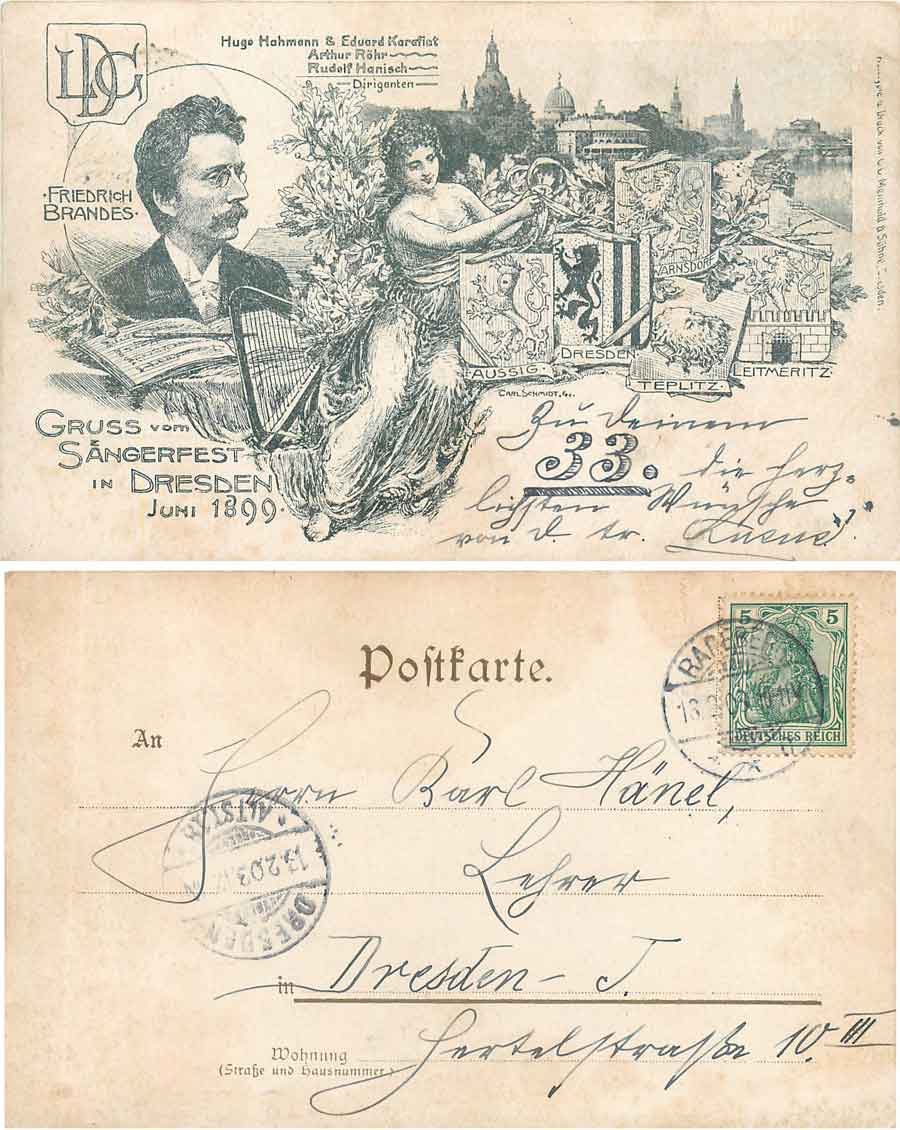 LDG
Hugo Hahmann & Eduard Karafiat
Arthur Röhr
Rudolf Hanisch
Dirigenten
·FRIEDRICH
BRANDES·
WARNSDORF
·AUSSIG·
DRESDEN
TEPLITZ·
LEITMERITZ·
CARL SCHMIDT,
GRUSS vom
SÄNGERFEST
IN DRESDEN
JUNI 1899·
Zu Deinem
33. die herz-
lichsten Wünsche
von d. tr.
Druck von C. C. Meinhold & Söhne
Postkarte.
5 5
DEUTSCHES REICH
An
Herrn Karl Hänel,
Lehrer
in Dresden - J.
Wohnung Hertelstraße 10 III
(Straße und Hausnummer)
DRESDEN
ALTST.
13.2.03.